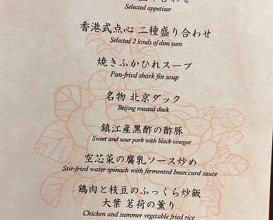 Selected appetizer
香港式点心 二種盛り合わせ
Selected 2 kinds of dim sum
焼きふかひれスープ
Pan-fried shark fin soup
名物 北京ダック
Beijing roasted duck
鎮江産黒酢の酢豚
Sweet and sour pork with black vinegar
空芯菜の腐乳ソース炒め
Stir-fried water spinach with fermented bean curd sauce
鶏肉と枝豆のふっくら炒飯
大葉 茗荷の薫り
Chicken and summer vegetable fried rice